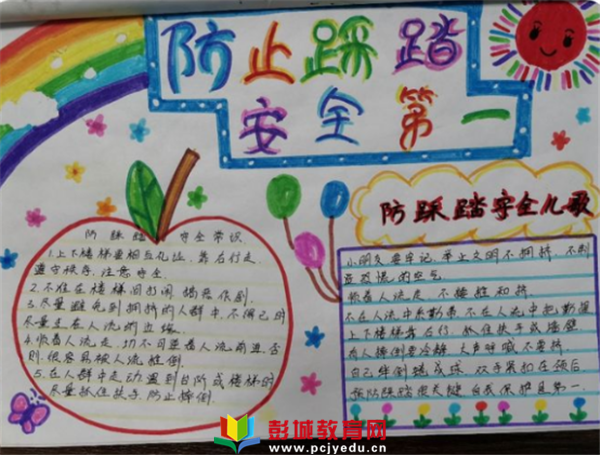 防止踩踏
安全第一
防踩踏安全常识
1.上下楼梯要相互礼让,靠右行走,
遵守秩序,注意安全.
2.不在楼梯间打闹 搞恶作剧.
3.尽量避免到拥挤的人群中,不得已时
尽量走在人流的边缘.
4.顺着人流走,切不可逆着人流前进,否
则,很容易被人流推倒.
5.在人群中走动,遇到台阶或楼梯时
尽量抓住扶手,防止摔倒.
防踩踏安全儿歌
小朋友要牢记,举止文明不拥挤,不制
造恐慌的空气
顺着人流走 不
不在人流中系鞋带 不在人流中把
上下楼梯靠右行 抓住扶手或墙壁
有人摔倒要冷静 大声呼喊不要挤
自己绊倒 成球 双手紧扣在颈后
预防踩踏是关键 自我保护是第一.
彭城教育网
www.pcjyedu.cn